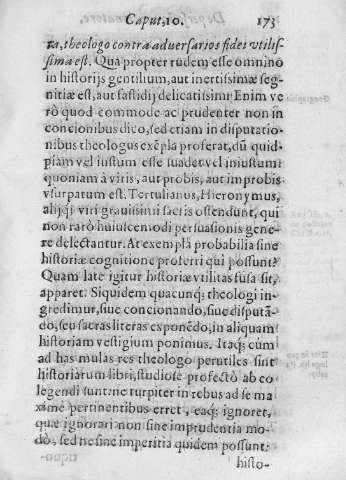 Caput, 10. 173
ra, theologo contra aduersarios fidei vtilis-
sima est. Qua propter rudem esse omnino
in historijs gentilium, aut inertissimæ seg-
nitiæ est, aut fastidij delicatissimi Enim ve
rò quod commode ac prudenter non in
concionibus dico, sed etiam in disputatio-
nibus theologus exẽpla proferat, dũ quid-
piam vel iustum esse suadet vel iniustum
quoniam à viris, aut probis, aut improbis
vsurpatum est. Tertulianus, Hieronymus,
alijq; viri grauissimi sacris ostendunt, qui
non rarò huiuscemodi persuasionis gene-
re delectantur. At exempla probabilia sine
historiæ cognitione proferri qui possunt?
Quam late igitur historiæ vtilitas fusa sit,
apparet. Siquidem quacunq; theologi in-
gredimur, siue concionando, siue disputã-
do, seu sacras literas exponẽdo, in aliquam
historiam vestigium ponimus. Itaq; cùm
ad has multas res theologo perutiles sint
historiarum libri, studiose profectò ab eo
legendi sunt: ne turpiter in rebus ad se ma
xime pertinentibus erret, eaq; ignoret,
quæ ignorari non sine imprudentia mo-
dò, sed ne sine imperitia quidem possunt.
histo-